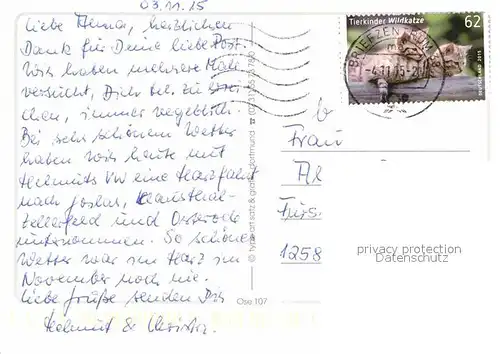 03.11.15
Liebe Alma, herzlichen
Dank für Deine liebe Post.
Wir haben mehrere Male
versucht, Dich tel. zu errei-
chen, immer vergeblich.
Bei sehr schönem Wetter
haben wir heute mit
Helmuts VW eine Harzfahrt
nach Goslar, Clausthal-
Zellerfeld und Osterode
unternommen. So schönes
Wetter war im Harz im
November noch nie.
Liebe Grüße senden Dir
Helmut & Christa.
Ose 107
Tierkinder Wildkatze
62
DEUTSCHLAND 2015
BRIEFZENTRUM
-4.11.15-2
Frau
Al
Fürs
1258
privacy protection
Datenschutz